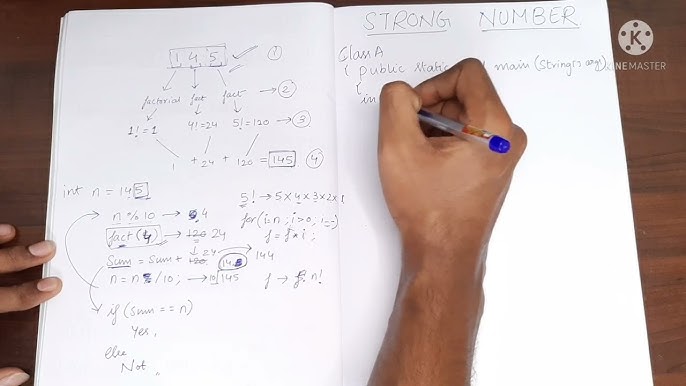 1, 4, 5, ✓ → ①
factorial fact fact → ②
1! = 1 4! = 24 5! = 120 → ③
1 + 24 + 120 = 145 ④
int n = 145
5! → 5 x 4 x 3 x 2 x 1
n % 10 → 4
for(i=n; i>0; i--)
fact(4) → 120 24
f = f * i;
Sum = Sum + 120 24 144
n = n / 10; → 10 145
f → n!
if (sum == n)
Yes,
else
Not
STRONG NUMBER
Class A
{ public static main (String args)
{
in
K
KINEMASTER